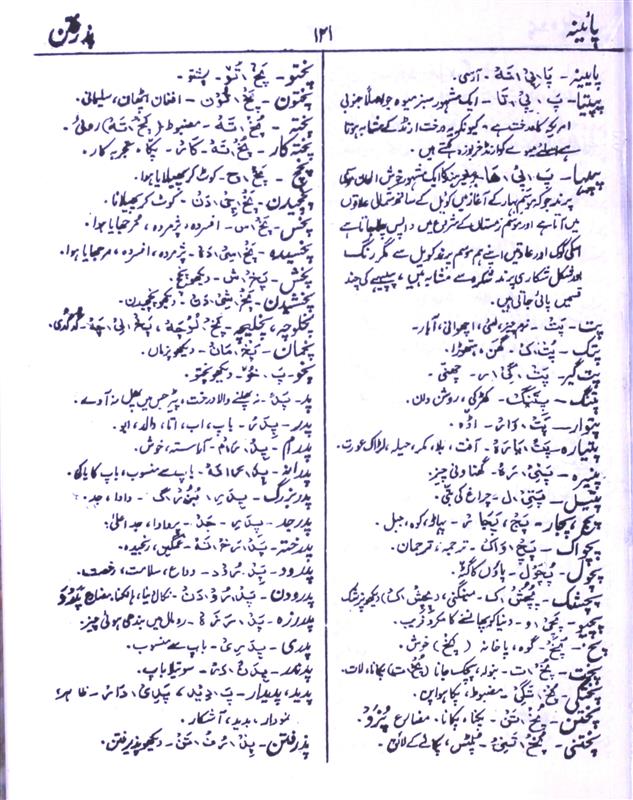 پائینہ
۱۲۱
پذرفتن
پایینہ - پَا ؍ یِ ؍ نَہْ - آرسی.
پپیتا - پَ ؍ پِیْ ؍ تَا - ایک مشہور سبز میوہ جو اصلاً جنوبی
امریکہ کا درخت ہے، کیونکہ یہ درخت ارنڈ کے مشابہ ہوتا
ہے اسلئے میوے کو ارنڈ خربوزہ کہتے ہیں.
پپیہا - پَ ؍ پِیْ ؍ ھَا - ایک مشہور خوش الحان
پرند جو کہ موسم بہار کے آغاز میں کوئل کے ساتھ شمالی علاقوں
میں آتا ہے اور موسم زمستان کے شروع میں واپس چلا جاتا ہے
اسکی کوک اور عادتیں اپنے ہم موسم پرند کویل سے مگر رنگ
اور شکل شکاری پرند شکرہ سے مشابہ ہیں، پپیہے کی چند
قسمیں پائی جاتی ہیں.
پت - پَتْ - نرم چیز، آہار.
پتک - پُتْ ؍ کْ - گھن، ہتھوڑا.
پت گیر - پَتْ ؍ گِیْ ؍ رْ - چھنی
پتنگ - پَتَنْگْ - کھڑکی، روشن دان.
پتوار - پَتْ ؍ وَا ؍ رْ - اڈہ.
پتیارہ - پَتْ ؍ یَا ؍ رَہْ - آفت، بلا، مکر، حیلہ، لڑاک عورت.
پتیرہ - پَتِیْ ؍ رَہْ - گھناونی چیز.
پتیل - پَتِیْ ؍ لْ - چراغ کی بتی.
پچ، پچار - پَچْ، پَچَا ؍ رْ - پہاڑ، کوہ، جبل.
پچواک - پَچْ ؍ وَاکْ - ترجمہ، ترجمان.
پچول - پُچُوْلْ - پاؤں کا گٹہ.
پچشک - دیکھو پزشک
پچیو - دنیا کو پھانسنے کا مکر و فریب.
پخ - پَخْ - گوہ، پاخانہ (پِخْ) خوش.
پخت - پَخْ ؍ تْ - پچک جانا (پُخْ ؍ تْ) پکانا، لات.
پختگی - پُخْ ؍ تَگِیْ - مضبوط، پکا ہوا پن.
پختن - پُخْ ؍ تَنْ - پکنا، پکانا. مضارع پُزَدْ.
پختنی - پُخْ ؍ تَنِیْ - پلٹس، پکانے کے لائق.
پختو - پَخْ ؍ تَوْ - پشتو.
پختون - پَخْ ؍ تُوْنْ - افغان، پٹھان، سلیمانی.
پختہ - پُخْ ؍ تَہْ - مضبوط (پَخْ ؍ تَہْ) روئی.
پختہ کار - پُخْ ؍ تَہْ ؍ کَا ؍ رْ - پکا، تجربہ کار.
پخچ - پَخْ ؍ چْ - کوٹ کر پھیلایا ہوا.
پخچیدن - پَخْ ؍ چِیْ ؍ دَنْ - کوٹ کر پھیلانا.
پخس - پَخْ ؍ سْ - افسردہ، پژمردہ، مرجھایا ہوا.
پخسیدہ - پَخْ ؍ سِیْ ؍ دَہْ - پژمردہ، افسردہ، مرجھایا ہوا.
پخش - پَخْ ؍ شْ - دیکھو پخچ.
پخشیدن - پَخْ ؍ شِیْ ؍ دَنْ - دیکھو پخچیدن.
پخلوچہ، پخلیچہ - پَخْ ؍ لُوْچَہْ، پَخْ ؍ لِیْ ؍ چَہْ - گدگدی.
پخمان - پَخْ ؍ مَانْ - دیکھو پژمان.
پخو - پَ ؍ خَوْ - دیکھو پختو.
پد - پَدْ - نہ پھلنے والا درخت، پیڑ جس میں پھل نہ آوے.
پدر - پِدَ ؍ رْ - باپ، اب، ابا، والد، ابو.
پدرام - پِدْ ؍ رَا ؍ مْ - آراستہ، خوش.
پدرانہ - پِدَ ؍ رَا ؍ نَہْ - باپ سے منسوب، باپ کا یا کی.
پدر بزرگ - پِدَ ؍ رِ ؍ بُزُ ؍ رْگْ - دادا، جد.
پدر جد - پِدَ ؍ رِ ؍ جَدْ - پردادا، جد اعلیٰ.
پدرختہ - پَدْ ؍ رَخْ ؍ تَہْ - غمگین، رنجیدہ.
پدرود - پِدْ ؍ رُوْدْ - وداع، سلامت، رخصت.
پدرودن - پِدْ ؍ رُوْ ؍ دَنْ - نکال لینا، ہانکنا، مضارع
پدرزہ - پَدْ ؍ رَزَہْ - رومال میں بندھی ہوئی چیز.
پدری - پِدَ ؍ رِیْ - باپ سے منسوب.
پدندر - پِدَنْ ؍ دَ ؍ رْ - سوتیلا باپ.
پدید، پدیدار - پَ ؍ دِیْدْ، پَدِیْ ؍ دَا ؍ رْ - ظاہر،
نمودار، پدید، آشکار.
پذرفتن - پِذْ ؍ رُفْ ؍ تَنْ - دیکھو پذیرفتن.